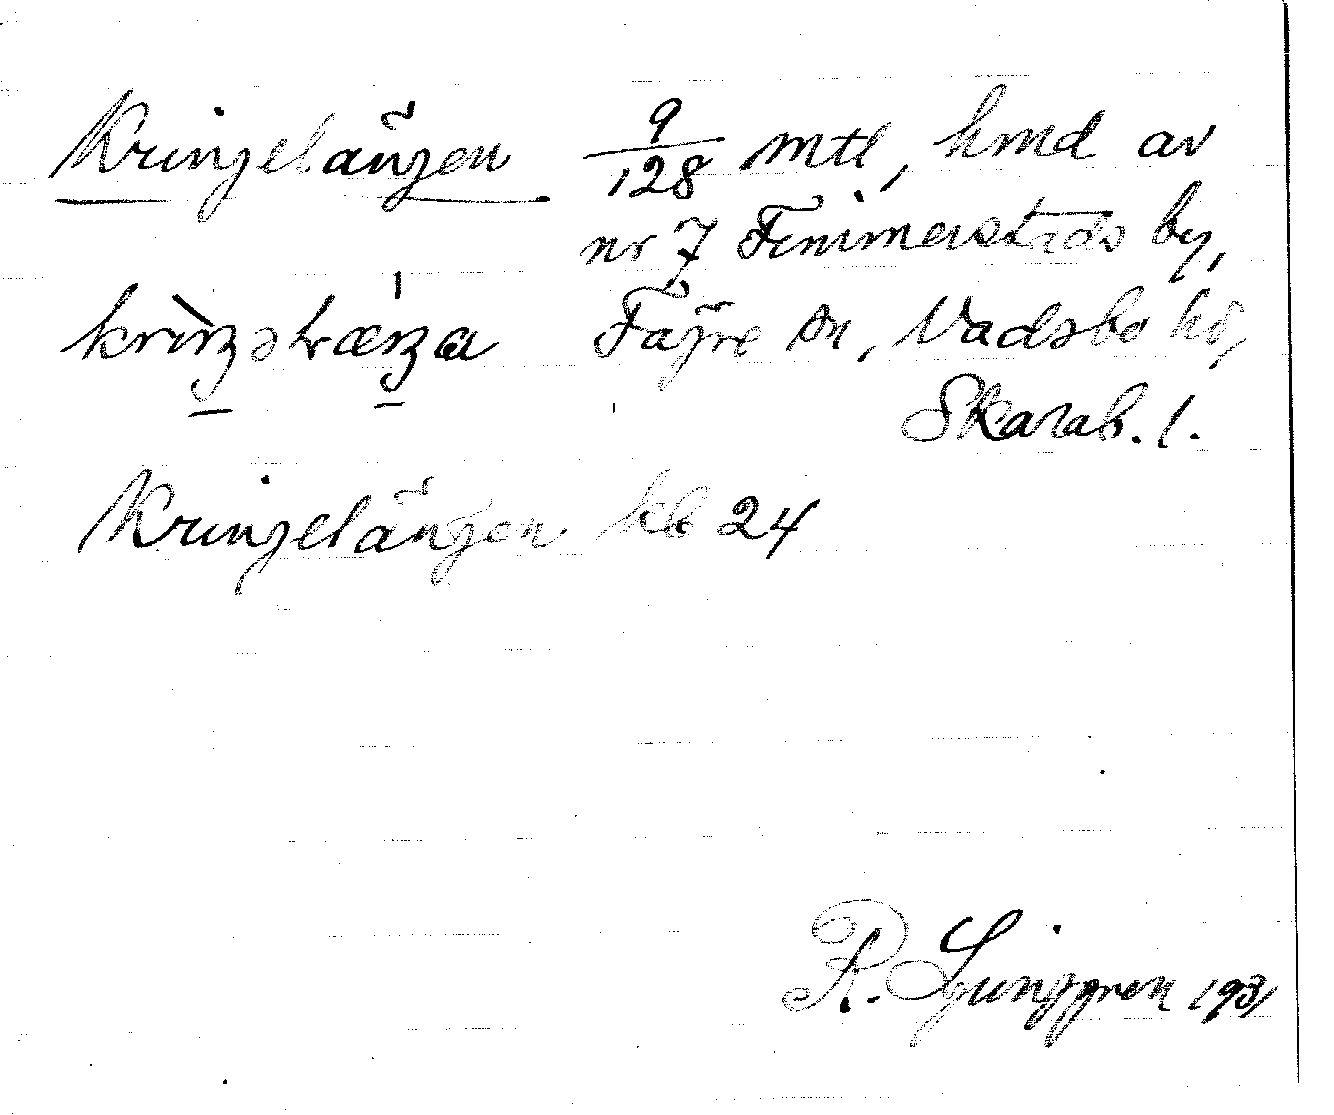 Kringelängen 9/128 mtl, hmd av
nr 7 Fimmerstads by,
Fägre sn, Vadsbo hd,
Skarab. l.
Kringelängen kb 24
R. Ljunggren 1931